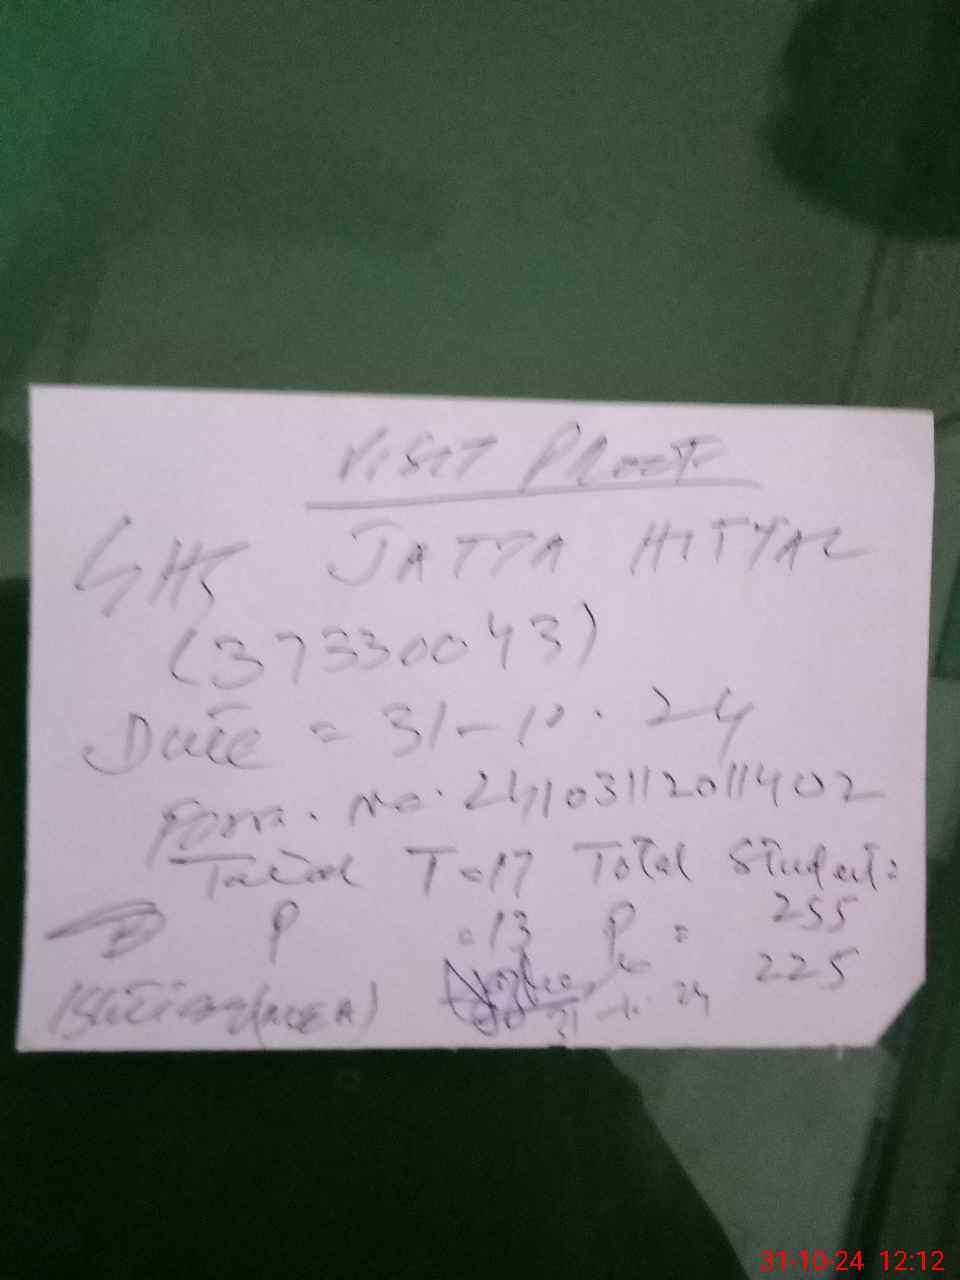 VISIT PROOF
GHS JATTA HITYAL
(37330043)
Date = 31-10.24
Form. No. 2410311201402
Total T=17 Total Student=
P =13 P = 255
225
(MEA)
31-10-24
31-10-24 12:12